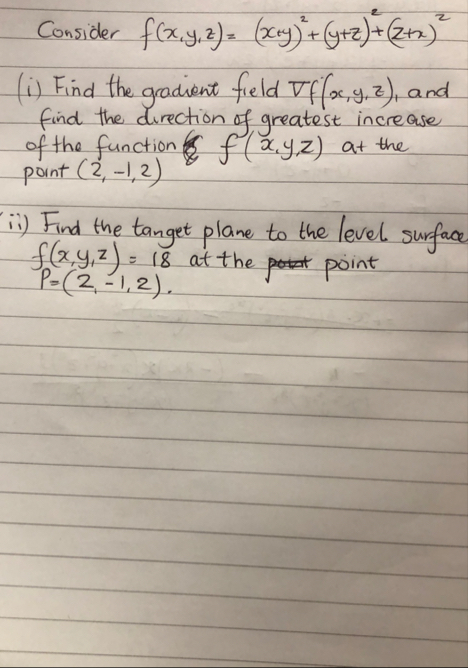 Consider f(x,y,z) = (x+y)² + (y+z)² + (z+x)²
(i) Find the gradient field ∇f(x,y,z), and
find the direction of greatest increase
of the function f(x,y,z) at the
point (2, -1, 2)
ii) Find the tanget plane to the level surface
f(x,y,z) = 18 at the point
P=(2, -1, 2).